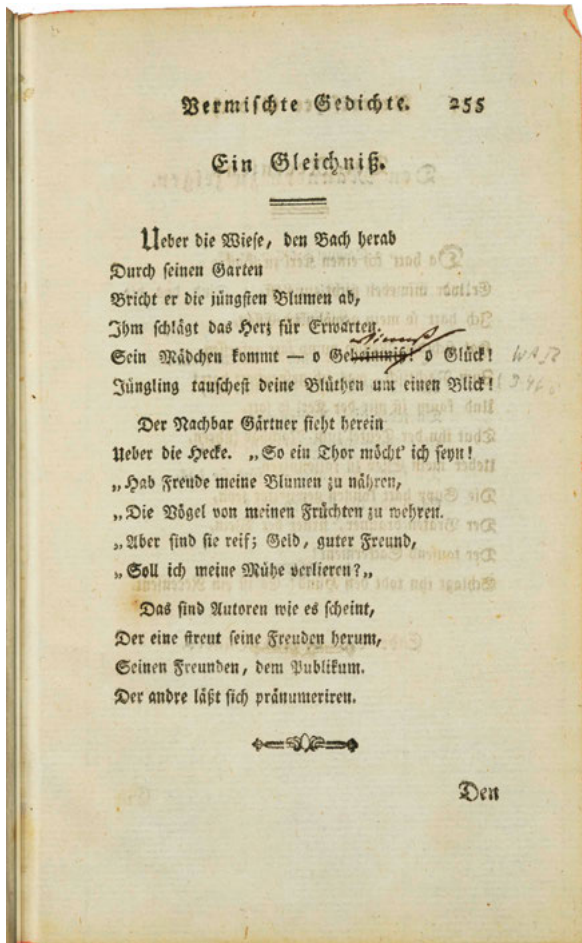 Vermischte Gedichte. 255
Ein Gleichniß.
Ueber die Wiese, den Bach herab
Durch seinen Garten
Bricht er die jüngsten Blumen ab,
Ihm schlägt das Herz für Erwarten.
Sein Mädchen kommt — o Geheimniß! o Glück!
Jüngling tauschest deine Blüthen um einen Blick!
Der Nachbar Gärtner sieht herein
Ueber die Hecke. „So ein Thor möcht' ich seyn!
„Hab Freude meine Blumen zu nähren,
„Die Vögel von meinen Früchten zu wehren.
„Aber sind sie reif; Geld, guter Freund,
„Soll ich meine Mühe verlieren?„
Das sind Autoren wie es scheint,
Der eine streut seine Freuden herum,
Seinen Freunden, dem Publikum.
Der andre läßt sich pränumeriren.
Den